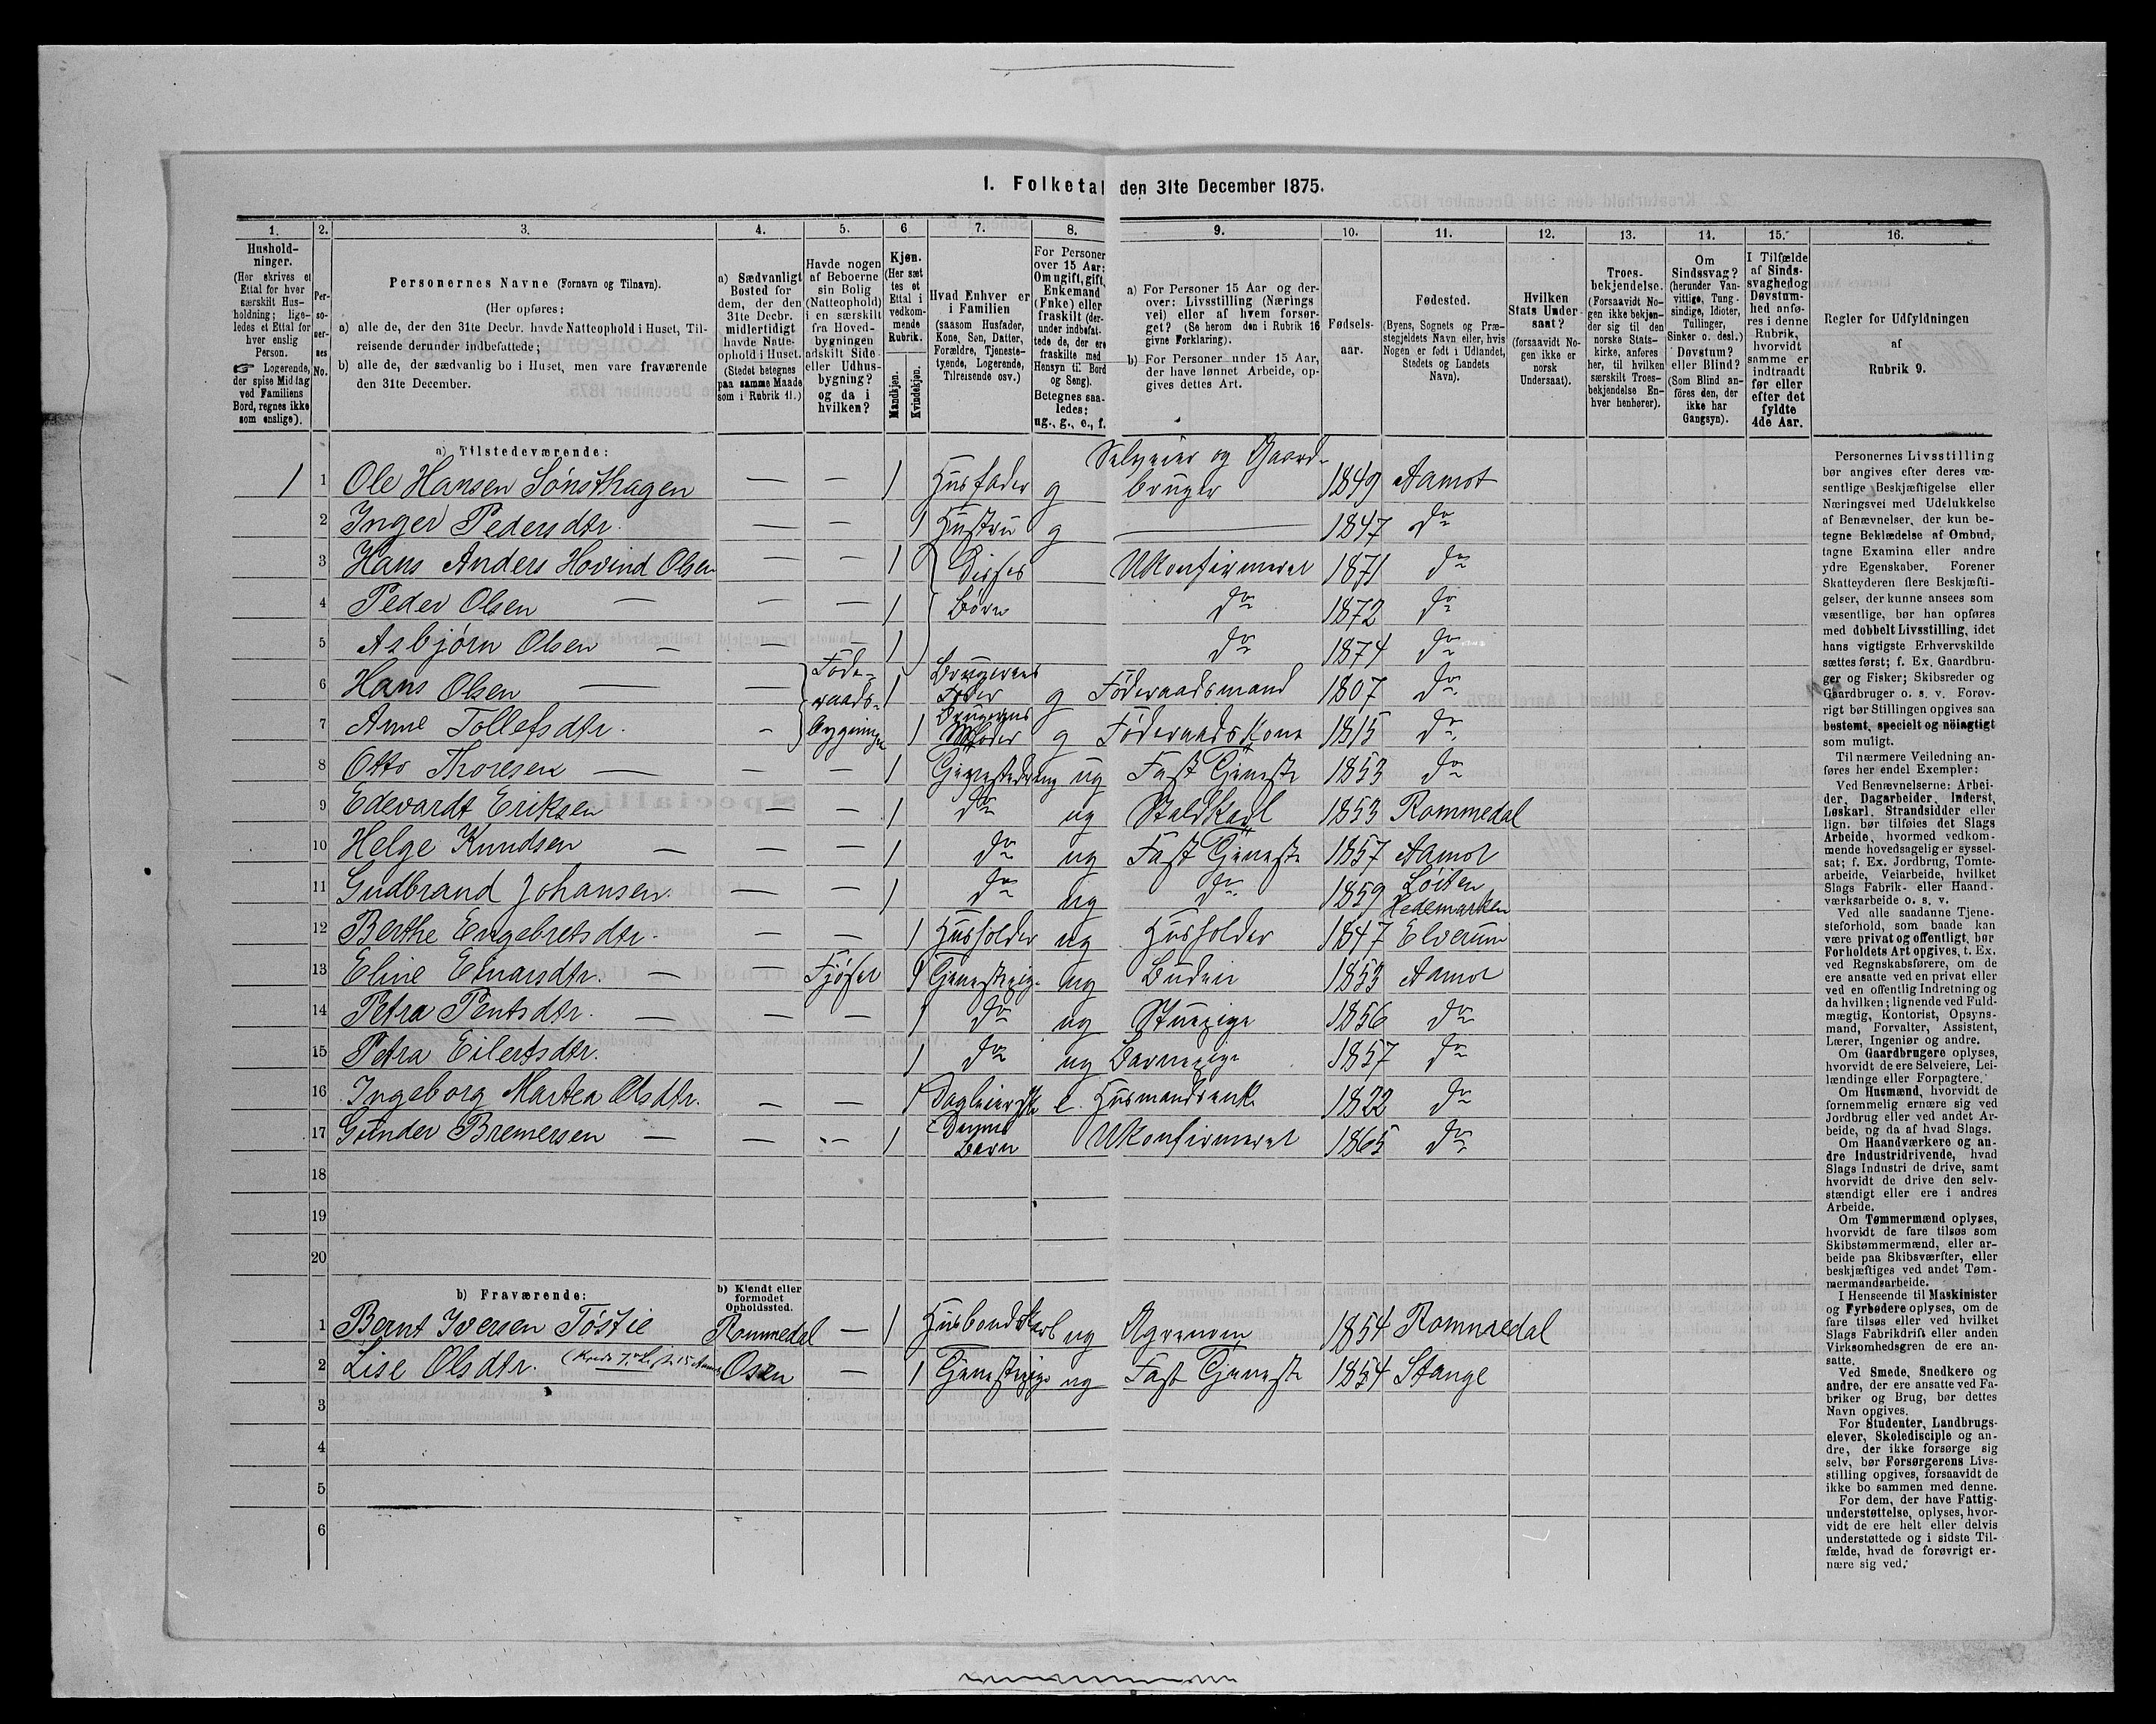 1. Folketal den 31te December 1875.
1. 2. 3. 4. 5. 6 7. 8. 9. 10. 11. 12. 13. 14. 15. 16.
Hushold-
ninger.
(Her skrives et
Ettal for hver
særskilt Hus-
holdning; lige-
ledes et Ettal for
hver enslig
Person.
☞ Logerende,
der spise Middag
ved Familiens
Bord, regnes ikke
som enslige).
Per-
so-
ner-
nes
No.
Personernes Navne (Fornavn og Tilnavn).
(Her opføres:
a) alle de, der den 31te Decbr. havde Natteophold i Huset, Til-
reisende derunder indbefattede;
b) alle de, der sædvanlig bo i Huset, men vare fraværende
den 31te December.
a) Sædvanligt
Bosted for
dem, der den
31te Decbr.
midlertidigt
havde Natte-
ophold i Huset.
(Stedet betegnes
paa samme Maade
som i Rubrik 11.)
Havde nogen
af Beboerne
sin Bolig
(Natteophold)
i en særskilt
fra Hoved-
bygningen
adskilt Side-
eller Udhus-
bygning?
og da i
hvilken?
Kjøn.
(Her sæt-
tes et
Ettal i
vedkom-
mende
Rubrik.
Mandkjøn.
Kvindekjøn.
Hvad Enhver er
i Familien
(saasom Husfader,
Kone, Søn, Datter,
Forældre, Tjeneste-
tyende, Logerende,
Tilreisende osv.)
For Personer
over 15 Aar:
Om ugift, gift,
Enkemand
(Enke) eller
fraskilt (der-
under indbefat-
tede de, der ere
fraskilte med
Hensyn til Bord
og Seng).
Betegnes saa-
ledes:
ug., g., e., f.
a) For Personer 15 Aar og der-
over: Livsstilling (Nærings
vei) eller af hvem forsør-
get? (Se herom den i Rubrik 16
givne Forklaring).
b) For Personer under 15 Aar,
der have lønnet Arbeide, op-
gives dettes Art.
Fødsels-
aar.
Fødested.
(Byens, Sognets og Præ-
stegjeldets Navn eller, hvis
Nogen er født i Udlandet,
Stedets og Landets
Navn).
Hvilken
Stats Under-
saat?
(forsaavidt No-
gen ikke er
norsk
Undersaat).
Troes-
bekjendelse.
(Forsaavidt No-
gen ikke bekjen-
der sig til den
norske Stats-
kirke, anføres
her, til hvilken
særskilt Troes-
bekjendelse En-
hver henhører).
Om
Sindssvag?
(herunder Van-
vittige, Tung-
sindige, Idioter,
Tullinger,
Sinker o. desl.)
Døvstum?
eller Blind?
(Som Blind an-
føres den, der
ikke har
Gangsyn).
I Tilfælde
af Sinds-
svaghed og
Døvstum-
hed anfø-
res i denne
Rubrik,
hvorvidt
samme er
indtraadt
før eller
efter det
fyldte
4de Aar.
Regler for Udfyldningen
af
Rubrik 9.
a) Tilstedeværende:
Selveier og Gaard-
1 1 Ole Hansen Sønsthagen — — 1 Husfader g bruger 1849 Aamot
2 Inger Pedersdtr. — — 1 Hustru g — 1847 do
3 Hans Anders Hovind Olsen — — 1 Disses Ukonfirmeret 1871 do
4 Peder Olsen — — — 1 Børn do 1872 do
5 Asbjørn Olsen — — — 1 do 1874 do
6 Hans Olsen — — Føde- 1 Brugerens Fader g Føderaadsmand 1807 do
raads-
7 Anne Tollefsdtr. - bygningen 1 Brugerens Moder g Føderaadskone 1815 do
8 Otto Thoresen — — — 1 Tjenestedreng ug Fast Tjeneste 1853 do
9 Edevardt Eriksen — — 1 do ug Staldkarl 1853 Rommedal
10 Helge Knudsen — — — 1 do ug Fast Tjeneste 1857 Aamot
11 Gudbrand Johansen. — — 1 do ug do 1859 Løiten
Hedemarken
12 Berthe Engebretsdtr. — — 1 Husholder ug Husholder 1847 Elverum
13 Eline Einarsdtr. — — Fjøset 1 Tjenestepige ug Budeie 1853 Aamot
14 Petra Pentsdtr. — — — 1 do ug Stuepige 1856 do
15 Petra Eilertsdtr. 1 do ug Barnepige 1857 do
16 Ingeborg Martea Olsdtr. — — 1 e. Husmandsenke 1822 do
17 Gunder Bremersen — — — 1 Dennes Barn Ukonfirmeret 1865 do
18
19
20
b) Fraværende:
b) Kjendt eller
formodet
Opholdssted.
1 Bernt Iversen Tøstie Rommedal — 1 Husbondskarl ug Agronom 1854 Rommedal
2 Lise Olsdtr. Osen — 1 Tjenestepige ug Fast Tjeneste 1854 Stange
3
4
5
6
Personernes Livsstilling
bør angives efter deres væ-
sentlige Beskjæftigelse eller
Næringsvei med Udelukkelse
af Benævnelser, der kun be-
tegne Beklædelse af Ombud,
tagne Examina eller andre
ydre Egenskaber. Forener
Skatteyderen flere Beskjæfti-
gelser, der kunne ansees som
væsentlige, bør han opføres
med dobbelt Livsstilling, idet
hans vigtigste Erhvervskilde
sættes først; f. Ex. Gaardbru-
ger og Fisker; Skibsreder og
Gaardbruger o. s. v. Forøv-
rigt bør Stillingen opgives saa
bestemt, specielt og nöiagtigt
som muligt.
Til nærmere Veiledning an-
føres her endel Exempler:
Ved Benævnelserne: Arbei-
der, Dagarbeider, Inderst,
Løskarl, Strandsidder eller
lign. bør tilføies det Slags
Arbeide, hvormed vedkom-
mende hovedsagelig er syssel-
sat; f. Ex. Jordbrug, Tomte-
arbeide, Veiarbeide, hvilket
Slags Fabrik- eller Haand-
værksarbeide o. s. v.
Ved alle saadanne Tjene-
steforhold, som baade kan
være privat og offentligt, bør
Forholdets Art opgives, t. Ex.
ved Regnskabsførere, om de
ere ansatte ved en privat eller
ved en offentlig Indretning og
da hvilken; lignende ved Fuld-
mægtig, Kontorist, Opsyns-
mand, Forvalter, Assistent,
Lærer, Ingeniør og andre.
Om Gaardbrugere oplyses,
hvorvidt de ere Selveiere, Lei-
lændinge eller Forpagtere.
Om Husmænd, hvorvidt de
fornemmelig ernære sig ved
Jordbrug eller ved andet Ar-
beide, og da af hvad Slags.
Om Haandværkere og an-
dre Industridrivende, hvad
Slags Industri de drive, samt
hvorvidt de drive den selv-
stændigt eller ere i andres
Arbeide.
Om Tømmermænd oplyses,
hvorvidt de fare tilsøs som
Skibstømmermænd, eller ar-
beide paa Skibsværfter, eller
beskjæftiges ved andet Tøm-
mermandsarbeide.
I Henseende til Maskinister
og Fyrbødere oplyses, om de
fare tilsøs eller ved hvilket
Slags Fabrikdrift eller anden
Virksomhedsgren de ere an-
satte.
Ved Smede, Snedkere og
andre, der ere ansatte ved Fa-
briker og Brug, bør dettes
Navn opgives.
For Studenter, Landbrugs-
elever, Skoledisciple og an-
dre, der ikke forsørge sig
selv, bør Forsørgerens Livs-
stilling opgives, forsaavidt de
ikke bo sammen med denne.
For dem, der have Fattig-
understøttelse, oplyses, hvor-
vidt de ere helt eller delvis
understøttede og i sidste Til-
fælde, hvad de forøvrigt er-
nære sig ved.